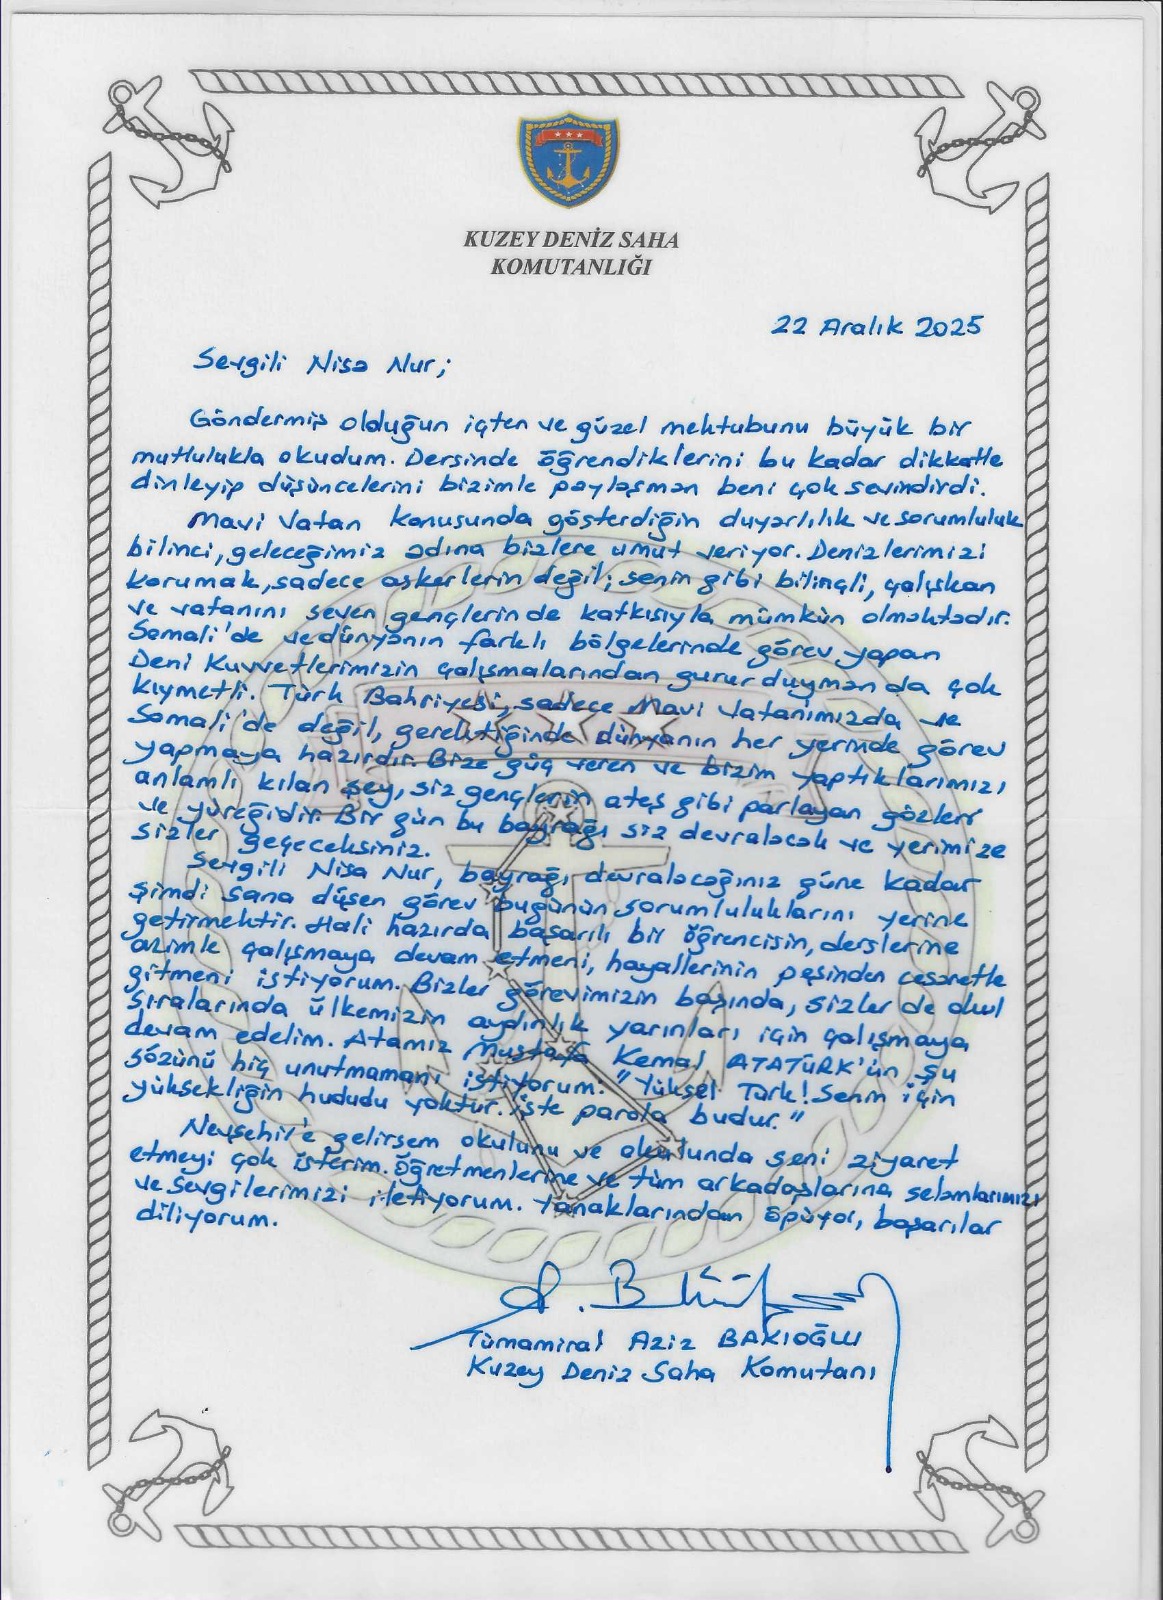 KUZEY DENİZ SAHA
KOMUTANLIĞI
22 Aralık 2025
Sevgili Nisa Nur;
Göndermiş olduğun içten ve güzel mektubunu büyük bir
mutlulukla okudum. Dersinde öğrendiklerini bu kadar dikkatle
dinleyip düşüncelerini bizimle paylaşman beni çok sevindirdi.
Mavi Vatan konusunda gösterdiğin duyarlılık ve sorumluluk
bilinci, geleceğimiz adına bizlere umut veriyor. Denizlerimizi
korumak, sadece askerlerin değil; senin gibi bilinçli, çalışkan
ve vatanını seven gençlerin de katkısıyla mümkün olmaktadır.
Somali'de ve dünyanın farklı bölgelerinde görev yapan
Deni Kuvvetlerimizin çalışmalarından gurur duyman da çok
kıymetli. Türk Bahriyesi, sadece Mavi Vatanımızda ve
Somali'de değil, gerektiğinde dünyanın her yerinde görev
yapmaya hazırdır. Bize güç veren ve bizim yaptıklarımızı
anlamlı kılan şey, siz gençlerin ateş gibi parlayan gözleri
ve yüreğidir. Bir gün bu bayrağı siz devralacak ve yerimize
sizler geçeceksiniz.
Sevgili Nisa Nur, bayrağı devralacağınız güne kadar
şimdi sana düşen görev bugünün sorumluluklarını yerine
getirmektir. Hali hazırda başarılı bir öğrencisin, derslerine
azimle çalışmaya devam etmeni, hayallerinin peşinden cesaretle
gitmeni istiyorum. Bizler görevimizin başında, sizler de okul
sıralarında ülkemizin aydınlık yarınları için çalışmaya
devam edelim. Atamız Mustafa Kemal ATATÜRK'ün şu
sözünü hiç unutmamanı istiyorum: "Yüksel Türk! Senin için
yüksekliğin hududu yoktur. İşte parola budur."
Nevşehir'e gelirsem okulunu ve okulunda seni ziyaret
etmeyi çok isterim. Öğretmenlerine ve tüm arkadaşlarına selamlarımızı
ve sevgilerimizi iletiyorum. Yanaklarından öpüyor, başarılar
diliyorum.
Tümamiral Aziz BAKIOĞLU
Kuzey Deniz Saha Komutanı